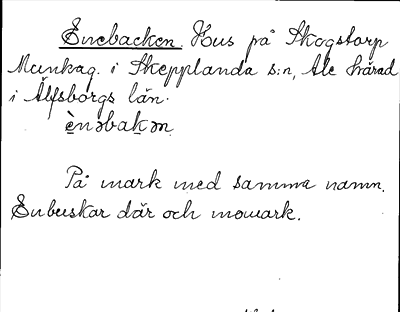 Enebacken. Hus på Skogstorp
Munkag. i Skepplanda s:n, Ale härad
i Älfsborgs län.
ènəbak̠ən
På mark med samma namn.
Enbuskar där och momark.